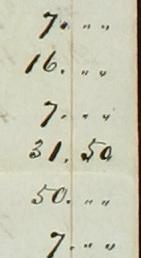 7. „ „
16. „ „
7. „ „
31. 50
50. „ „
7. „ „